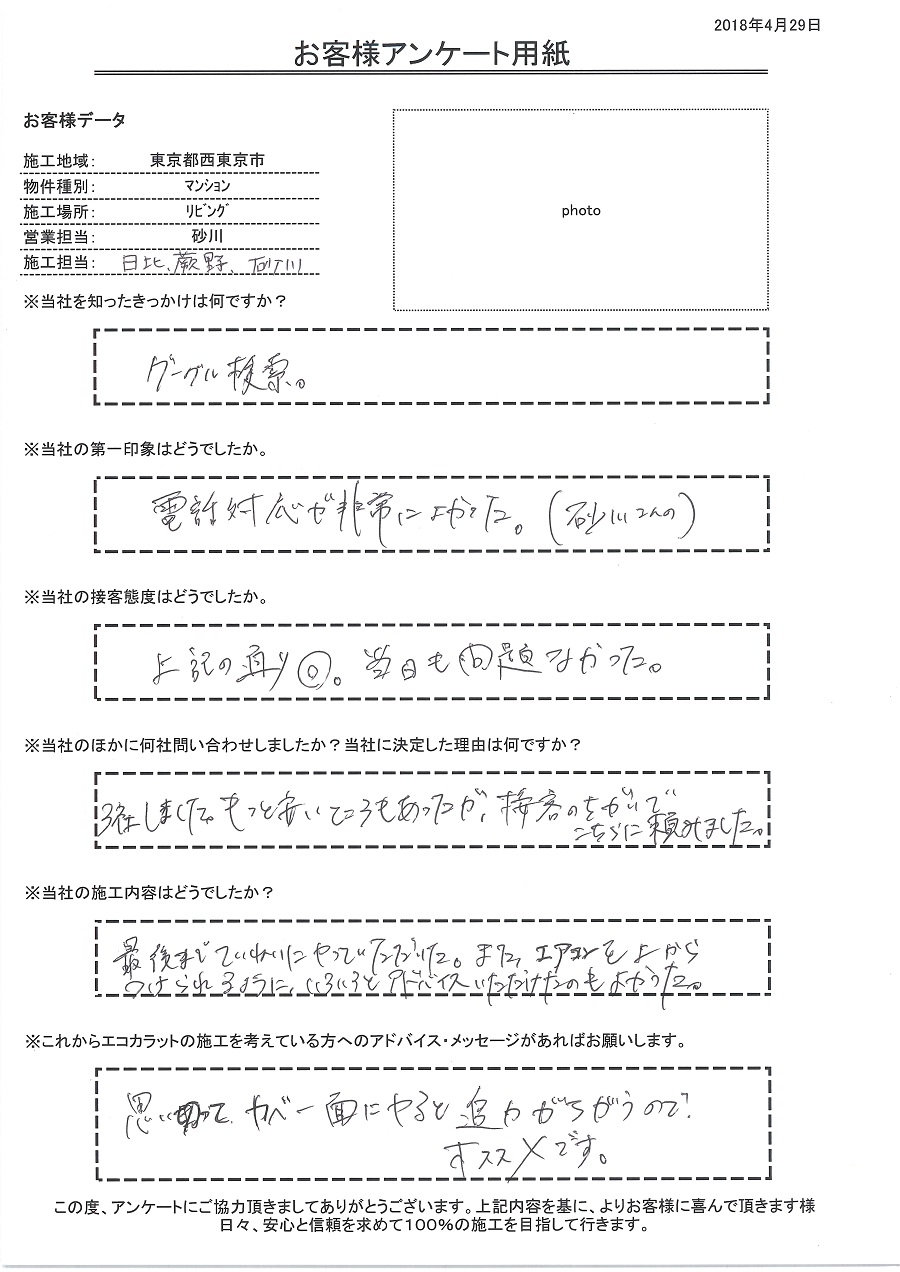 2018年4月29日
お客様アンケート用紙
お客様データ
施工地域： 東京都西東京市
物件種別： マンション
施工場所： リビング
営業担当： 砂川
施工担当： 日比、蕨野、砂川
photo
※当社を知ったきっかけは何ですか？
グーグル検索。
※当社の第一印象はどうでしたか。
電話対応が非常によかった。（砂川さんの）
※当社の接客態度はどうでしたか。
上記の通り◎。当日も問題なかった。
※当社のほかに何社問い合わせしましたか？当社に決定した理由は何ですか？
3社しました。もっと安いところもあったが、接客のちがいで
こちらに頼みました。
※当社の施工内容はどうでしたか？
最後までていねいにやっていただいた。また、エアコンを上から
つけられるように、いろいろとアドバイスいただけたのもよかった。
※これからエコカラットの施工を考えている方へのアドバイス・メッセージがあればお願いします。
思い切って、カベ一面にやると迫力がちがうので、
オススメです。
この度、アンケートにご協力頂きましてありがとうございます。上記内容を基に、よりお客様に喜んで頂きます様
日々、安心と信頼を求めて100%の施工を目指して行きます。